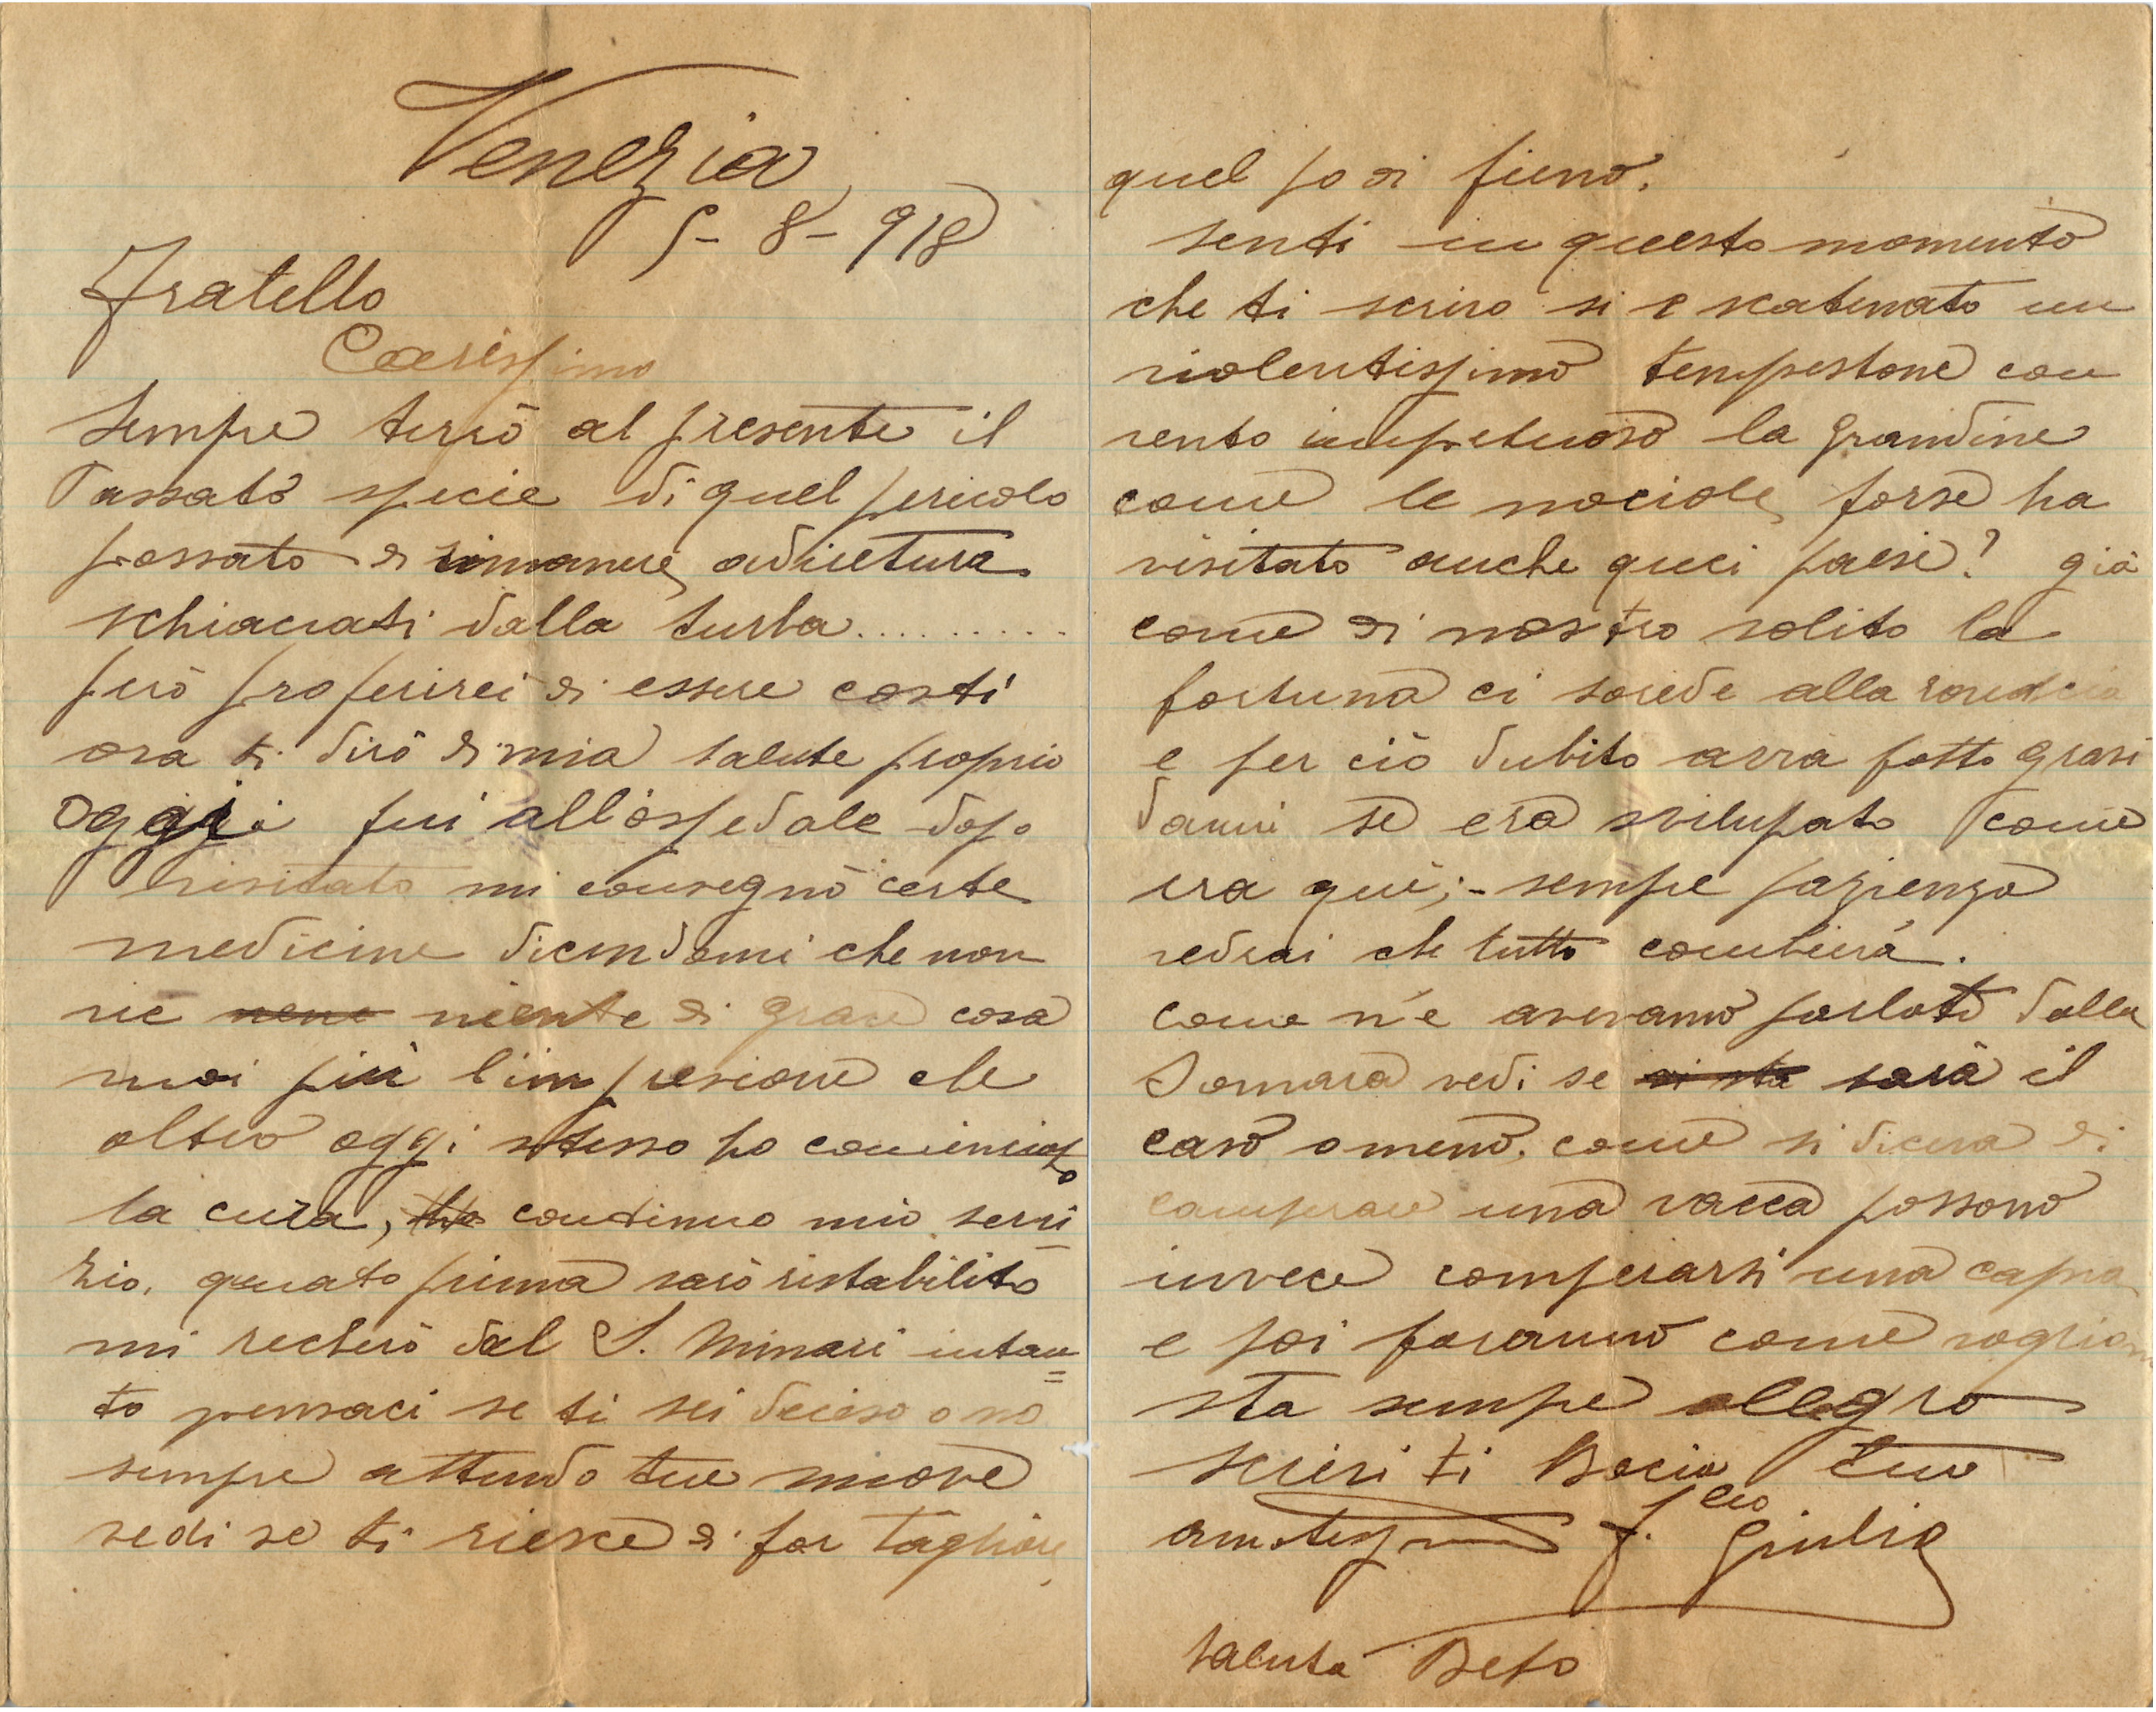 Venezia
5-8-918
Fratello
Carissimo
Sempre terrò al presente il
Passato specie di quel pericolo
possato di rimanere adiretura
schiaciati dalla turba..........
però proferirei di essere costi
ora ti dirò di mia salute proprio
oggi fui all'ospedale dopo
visitato mi consegnò certe
medicine dicendomi che non
vie niente di grave cosa
mai più l'impresione che
altro oggi stesso ho cominciato
la cura, continuo mio servi
zio. quato prima sarò ristabilito
mi recherò dal S. Minari intan=
to pensaci se ti sei deciso o no
sempre attendo tue niove
vedi se ti riesce di far tagliare
quel po di fieno.
senti in questo momento
che ti scrivo si e scatenato un
violentissimo tempestone con
vento impetuoso la grandine
come le nociole forse ha
visitato anche quei paesi? già
come di nostro solito la
fortuna ci soride alla
e per ciò dubito avrà fatto gravi
danni se era svilupato come
era qui;- sempre pazienza
vedrai che tutto combierà.
come n'e avevamo parlato dalla
Somara vedi se sarà il
caso o meno. come si diceva di
comperare una vacca possono
invece comperarsi una capra
e poi faranno come vogliono
sta sempre allegro
scrivi ti Bacia tuo
amatissmo f.llo Giulio
saluta Bepo